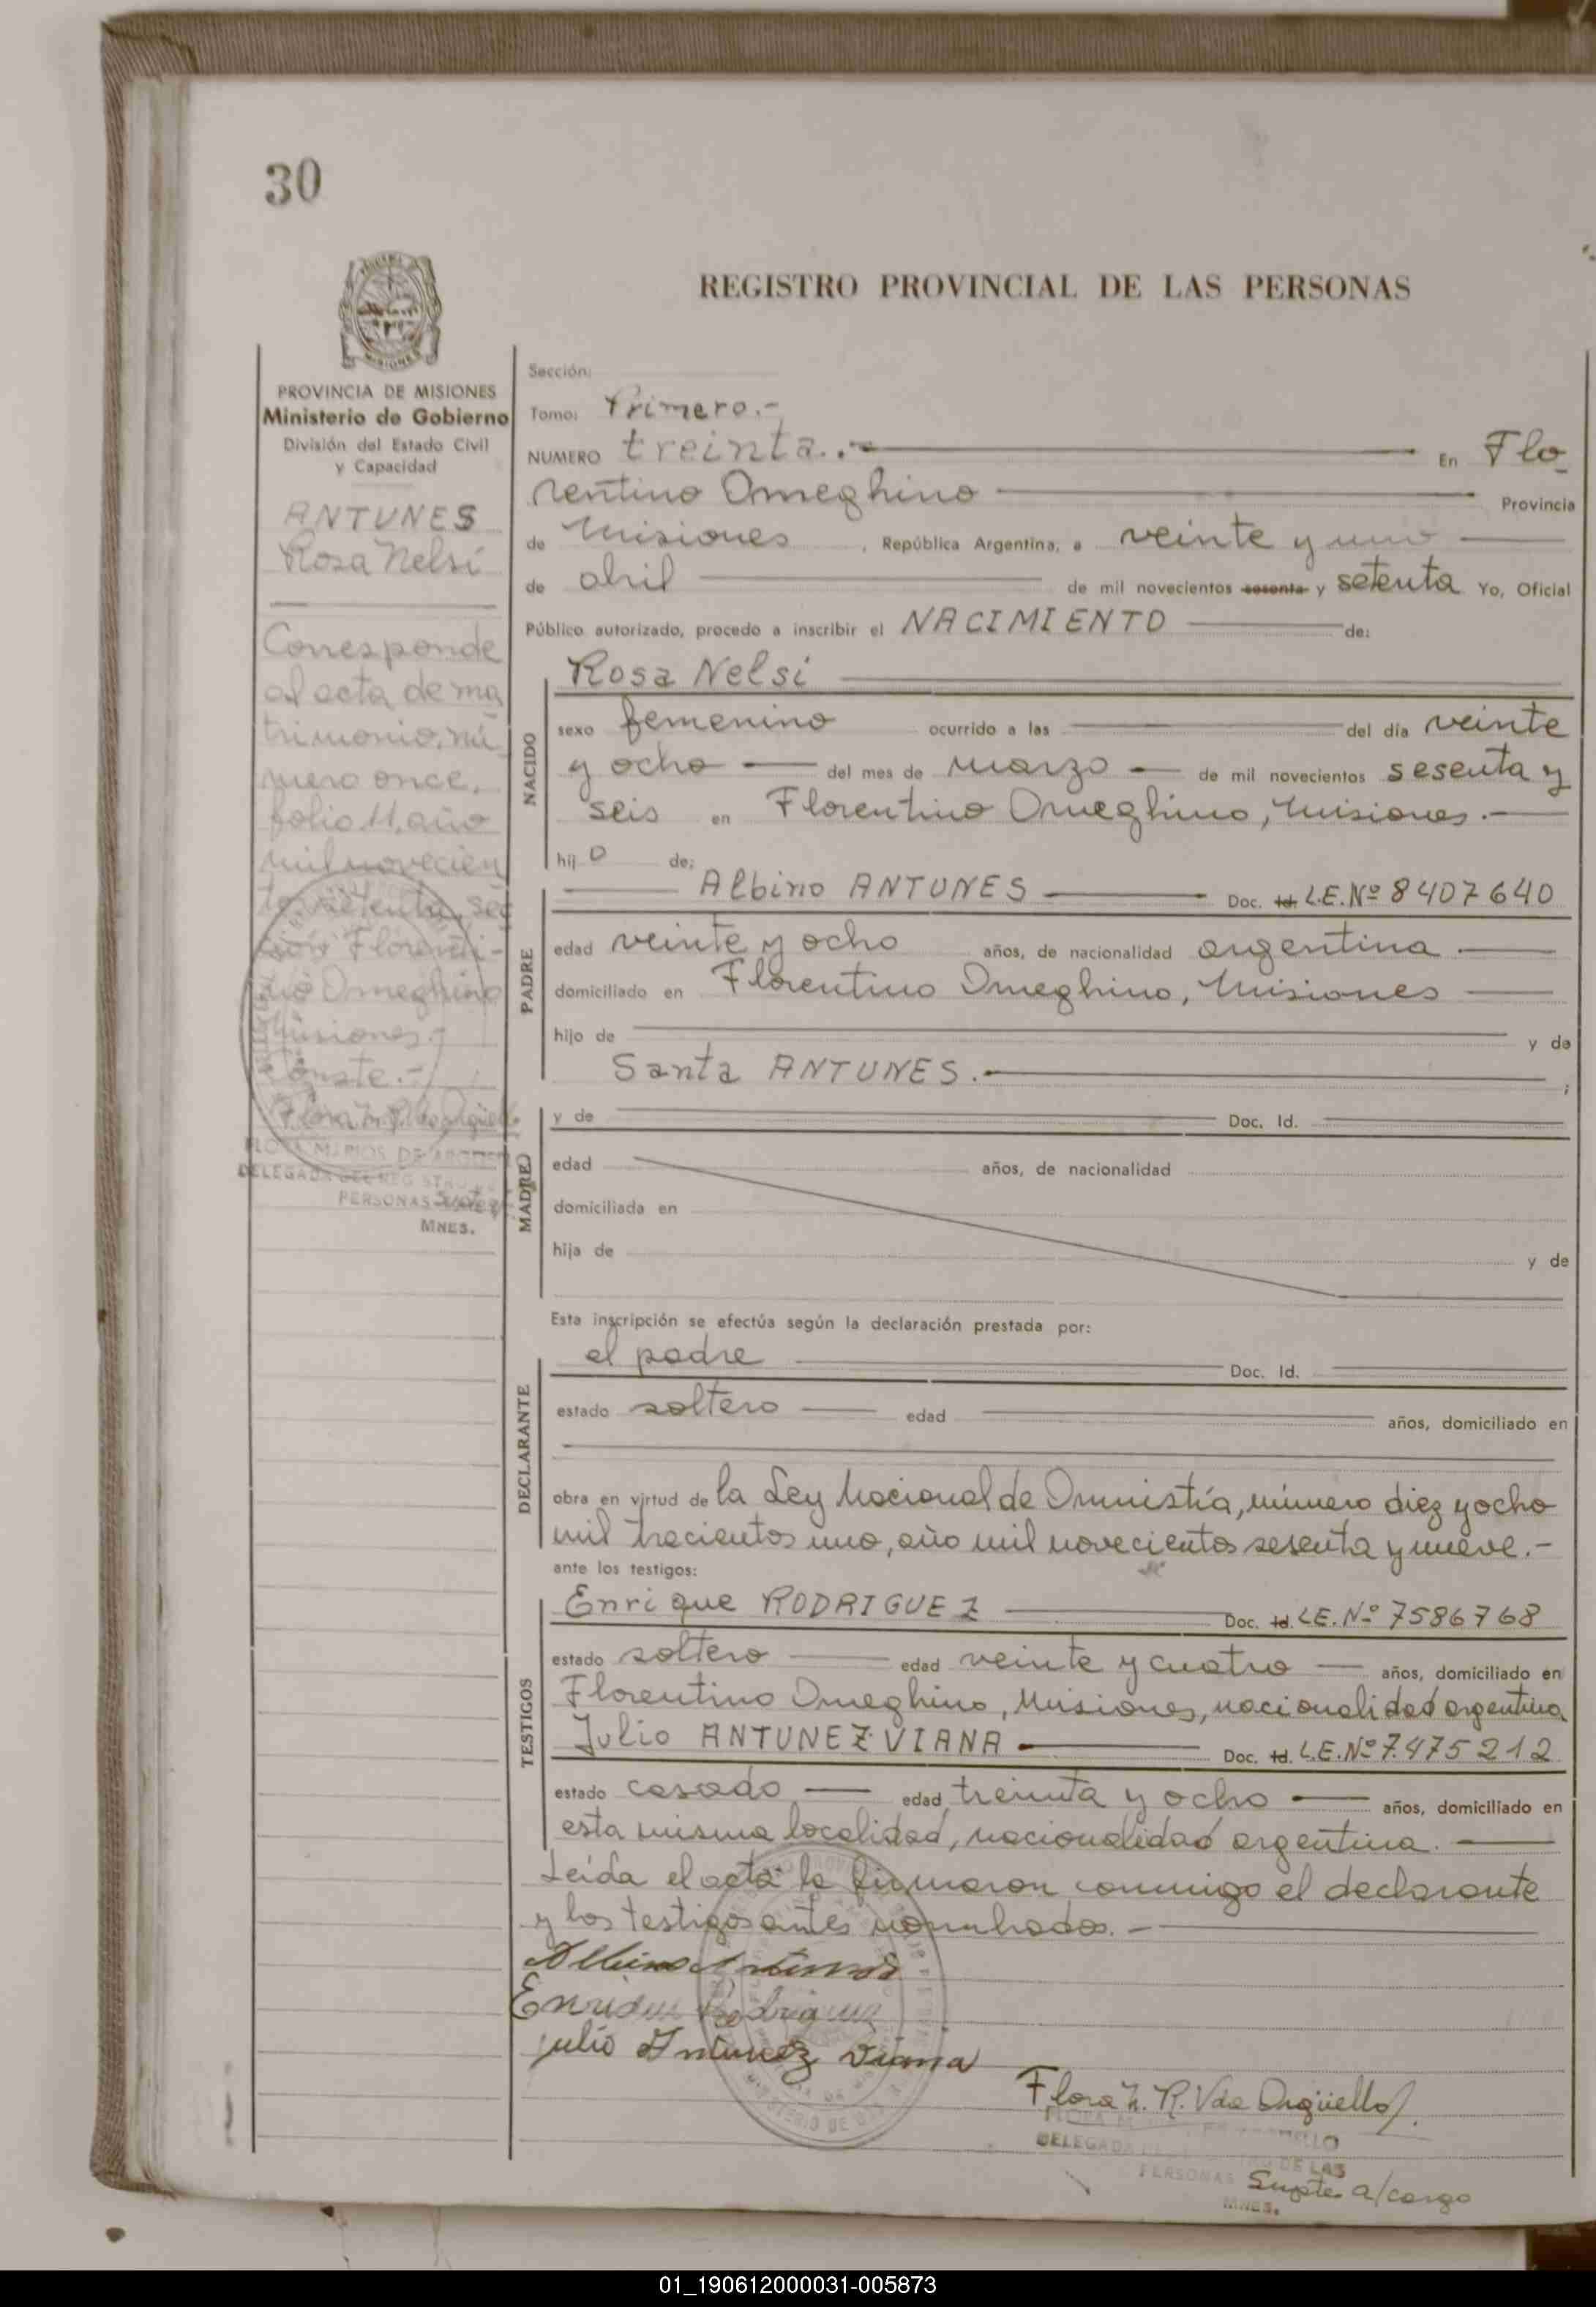 30
REGISTRO PROVINCIAL DE LAS PERSONAS
MISIONES
PROVINCIA DE MISIONES
Ministerio de Gobierno
División del Estado Civil
y Capacidad
ANTUNES
Rosa Nelsi
Corresponde
al acta de ma
trimonio, nú
mero once,
folio 11, año
mil novecien
tos setenta, sec
ción Florenti-
no Ameghino
Misiones.-
Conste.-
DELEGADA DEL REGISTRO
PERSONAS Supte
MNES.
Sección:
Tomo: Primero.-
NUMERO treinta..- En Flo
rentino Ameghino Provincia
de Misiones , República Argentina, a veinte y uno
de abril de mil novecientos sesenta y setenta Yo, Oficial
Público autorizado, procedo a inscribir el NACIMIENTO de:
NACIDO
Rosa Nelsi
sexo femenino ocurrido a las del día veinte
y ocho del mes de marzo de mil novecientos sesenta y
seis en Florentino Ameghino, Misiones.-
hij o de:
PADRE
Albino ANTUNES Doc. Id. L.E.Nº 8407640
edad veinte y ocho años, de nacionalidad argentina
domiciliado en Florentino Ameghino, Misiones
hijo de y de
Santa ANTUNES.- ;
MADRE
y de Doc. Id.
edad años, de nacionalidad
domiciliada en
hija de y de
Esta inscripción se efectúa según la declaración prestada por:
DECLARANTE
el padre Doc. Id.
estado soltero edad años, domiciliado en
obra en virtud de la Ley Nacional de Amnistía, número diez y ocho
mil trecientos uno, año mil novecientos sesenta y nueve.-
ante los testigos:
TESTIGOS
Enrique RODRIGUEZ Doc. Id. L.E.Nº 7586768
estado soltero edad veinte y cuatro años, domiciliado en
Florentino Ameghino, Misiones, nacionalidad argentina
Julio ANTUNEZ VIANA Doc. Id. L.E.Nº 7.475212
estado casado edad treinta y ocho años, domiciliado en
esta misma localidad, nacionalidad argentina.
Leída el acta la firmaron conmigo el declarante
y los testigos antes nombrados.-
Albino Antunes
Enrique Rodriguez
julio Antunez Viana
Flora M. R. Vda Argüello
DELEGADA DE LAS
PERSONAS Supte. a/cargo
MNES.
01_190612000031-005873